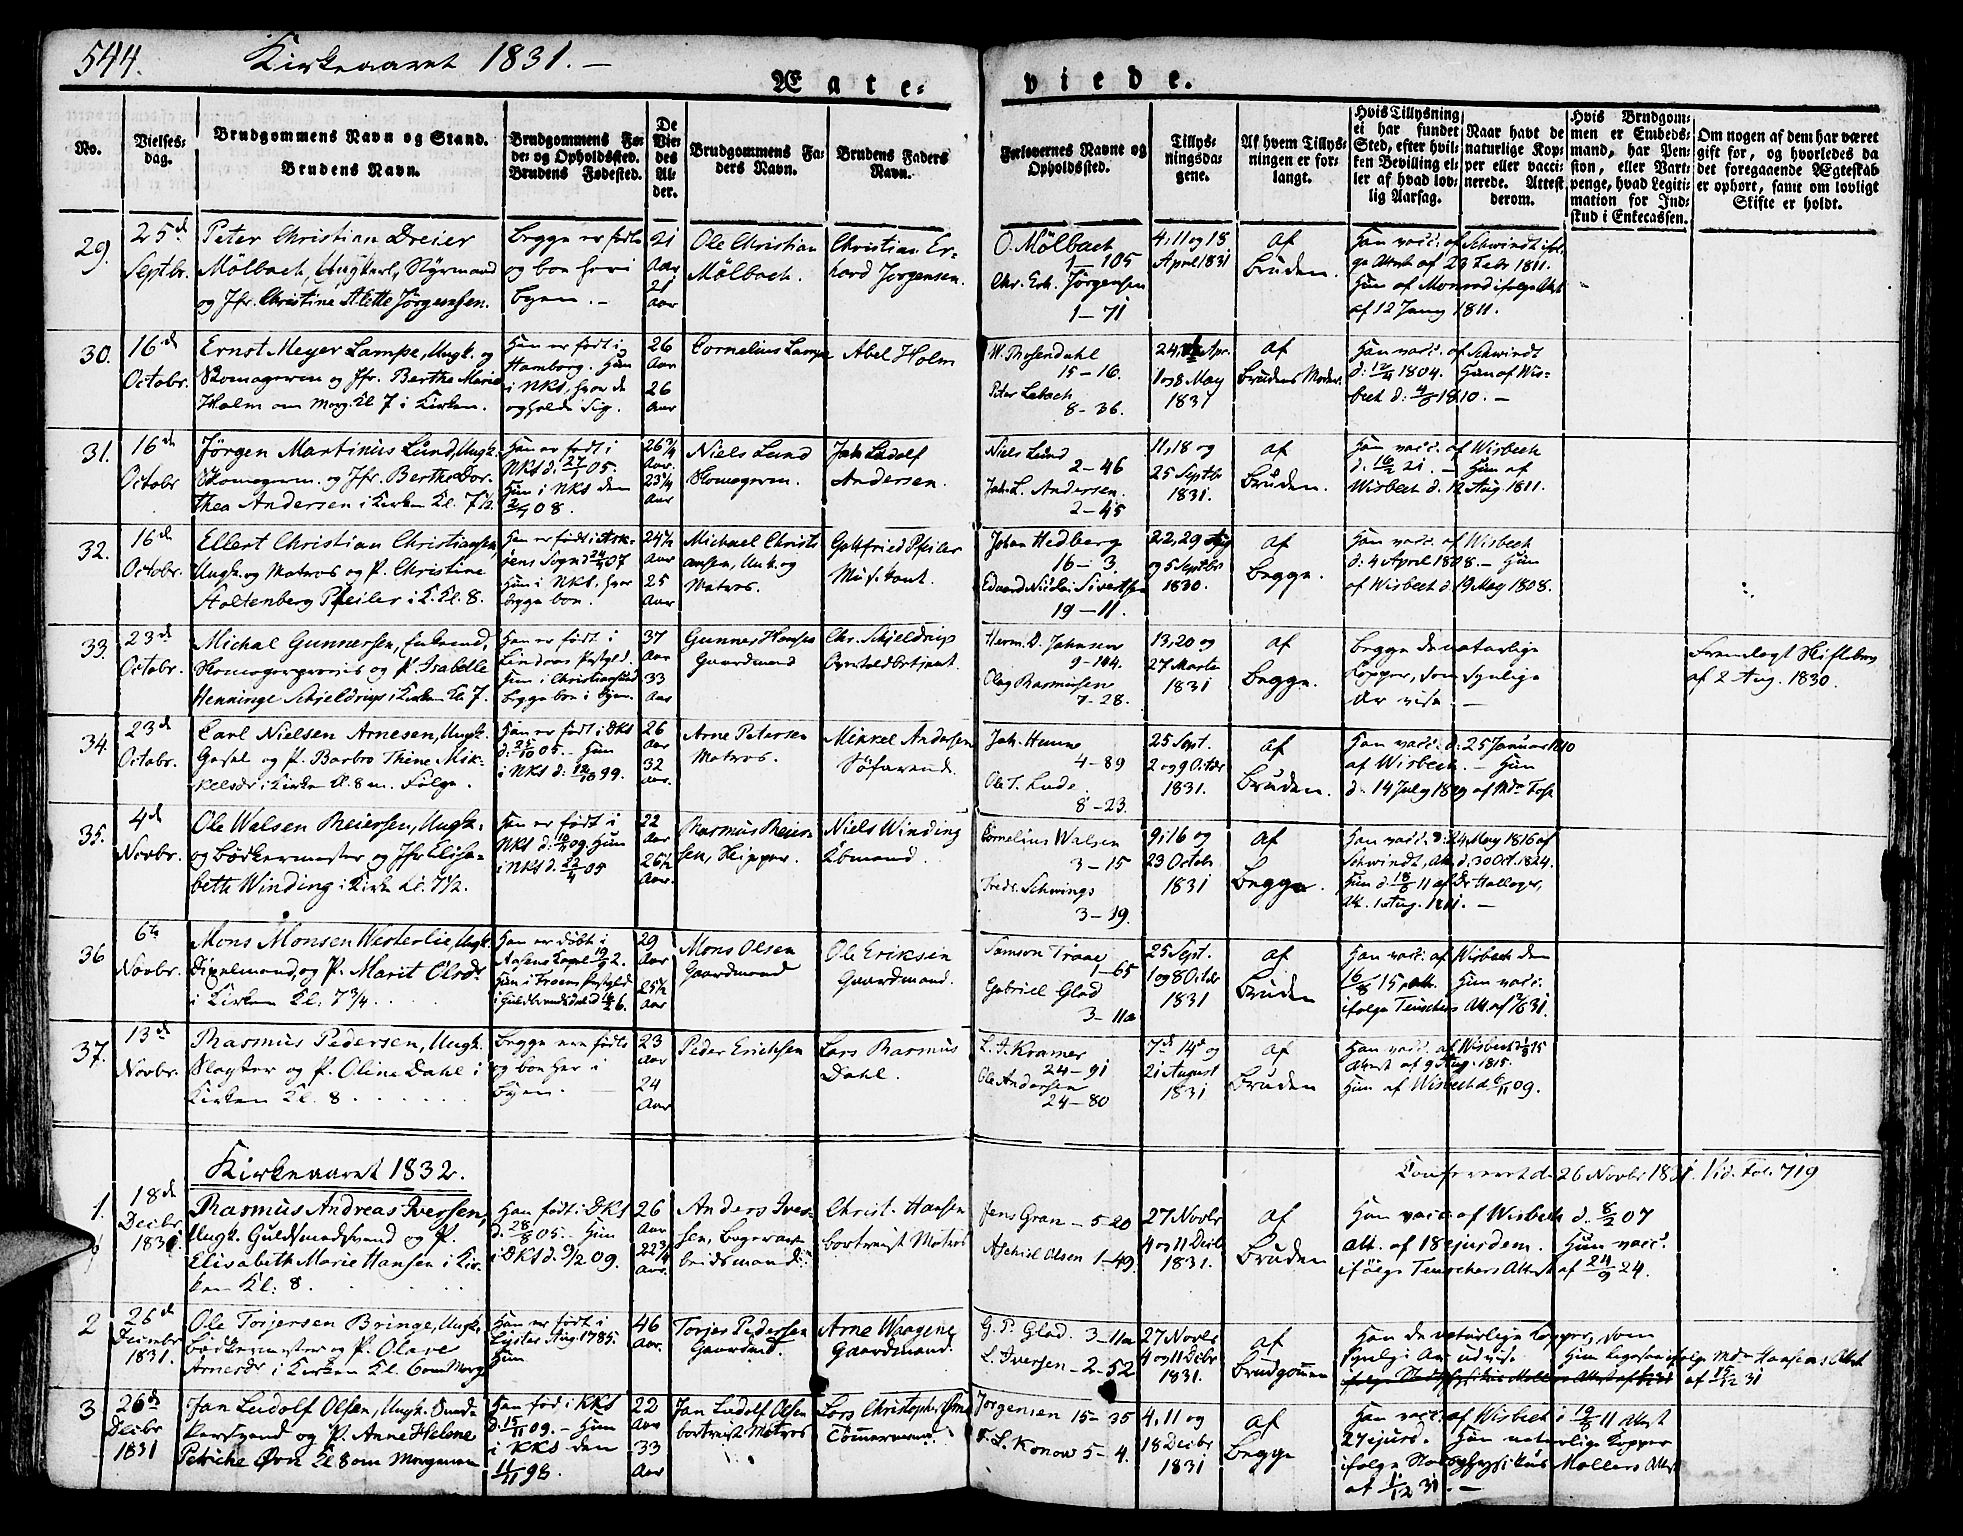 544.
Kirkeaaret 1831. —
Ægte-viede.
No.
Vielses-
dag.
Brudgommens Navn og Stand.
Brudens Navn.
Brudgommens Fø-
de- og Opholdssted.
Brudens Fødested.
De
Vie-
des
Al-
der.
Brudgommens Fa-
ders Navn.
Brudens Faders
Navn.
Forlovernes Navne og
Opholdssted.
Tillys-
ningsda-
gene.
Af hvem Tillys-
ningen er for-
langt.
Hvis Tillysning
ei har fundet
Sted, efter hvil-
ken Bevilling el-
ler af hvad lov-
lig Aarsag.
Naar havt de
naturlige Kop-
per eller vacci-
nerede. Attest
derom.
Hvis Brudgom-
men er Embeds-
mand, har Pen-
sion, eller Vart-
penge, hvad Legiti-
mation for Ind-
skud i Enkecassen.
Om nogen af dem har været
gift før, og hvorledes da
det foregaaende Ægteskab
er ophørt, samt om lovligt
Skifte er holdt.
29.
25de
Septbr.
Peter Christian Dreier
Mölbach, Ungkarl, Styrmand
og Jfr. Christine Alette Jörgensen.
Begge er födte
og boe her i
byen. —
21
Aar
21
Aar
Ole Christian
Mölbach.
Christian Er-
hard Jörgensen.
O. Mölbach
1—105
Chr. Erh. Jörgensen
1—71
4, 11 og 18
April 1831
af
Bruden.
Han vacc. af Schwindt iføl-
ge Attest af 23 Febr 1811.
Hun af Monrad ifølge Attest
af 12 Janv 1811.
30.
16de
Octobr.
Ernst Meyer Lampe, Ungk. og
Skomagersv. og Jfr. Berthe Marie
Holm om Morg. Kl 7 i Kirken.
Han er født i
Hamborg. Hun
i NKS, hvor de
opholde sig.
26
Aar
26
Aar
Cornelius Lampe
Abel Holm
W. Rosendahl
15—16.
Peter Lebach
8—36.
24, Apr.
1 og 8 May
1831
af
Brudens Moder.
Han vacc. af Schwindt
d: 12/4 1804. Hun af Wis-
bech d: 4/8 1810. —
31.
16de
Octobr
Jørgen Martinus Lund, Ungk.
Skomagersv. og Jfr. Berthe Dor-
thea Andersen i Kirken Kl. 7½.
Han er født i
NKS d. 27/1 05.
Hun i NKS den
2/4 08.
26¾
Aar.
23¼
Aar
Niels Lund
Skomagersv.
Joh. Ludolf
Andersen.
Niels Lund
2—46
Joh. L. Andersen.
2—45
11, 18 og
25 Septbr
1831.
af
Bruden.
Han vacc. af Wisbech
d. 16/2 21. — Hun af
Wisbech d. 12 Aug. 1811.
32.
16de
Octobr.
Ellert Christian Christiansen,
Ungk. og Matros og P. Christine
Holtenberg Pfeiler i K. Kl. 8.
Han er født i Ask-
øens Sogn d. 24/4 07
Hun i NKS. hvor
begge boe.
24½
Aar
25
Aar
Michael Christi-
ansen, Unk. og
Matros.
Gottfried Pfeiler
Musikant.
Johan Hedberg
16—3.
Edvard Nicolai Sivertsen
19—11.
22, 29 Aug
og 5 Septbr
1830.
af
Begge.
Han vacc. af Wisbech
d. 4 April 1808. — Hun
af Wisbech d. 19 May 1808.
33.
23de
Octobr.
Michal Gunnersen, Enkemd,
Skomagersvend og P. Isabelle
Henninge Schjeldrup i Kirken Kl 7.
Han er født i
Lindaas Pstgjeld.
Hun i Christiansund
begge boe i Byen.
37
Aar
33
Aar
Gunner Hansen
Gaardmand
Chr. Schjeldrup
Overtoldbetjent.
Herm. D. Johnsen
9—104.
Olag Rasmusen
7—28.
13, 20 og
27 Marts
1831
af
Begge.
Begge de naturlige
Kopper, som synlige
Ar vise. —
Fremlagt Skiftebrev
af 2 Aug. 1830.
34.
23de
Octobr.
Carl Nielsen Arnesen, Ungk.
Gesel og P. Barbro Thine Mik-
kelsdr i Kirken Kl. 8 m. Følge.
Han er født i DKS
d. 25/10 05. — Hun
i NKS d. 12/10 99.
26
Aar
32
Aar.
Arne Petersen
Matros.
Mikkel Andersen
Søfarende.
Joh. Hunne
4—89
Ole T. Lude.
8—23.
25 Sept.
2 og 9 Octbr
1831.
af
Bruden.
Han vacc. d. 25 Januar 1810
af Wisbech. — Hun
d. 14 July 1809 af Mdm Fosh
35.
4de
Novbr.
Ole Walsen Reiersen, Ungk.
og Bødkermester og Jfr Elisa-
beth Winding i Kirk Kl. 7½.
Han er født i
NKS d. 10/11 09. Hun
i NKS d. 22/4 05
22
Aar
26½
Aar.
Rasmus Reier-
sen, Skipper.
Niels Winding
Kbmand.
Cornelius Walsen
3—15
Fredr. Schwings
3—19.
9, 16 og
23 Octobr
1831
af
Begge.
Han vacc. d. 24 May 1816 af
Schwindt, Att. d. 30 Oct. 1824.
Hun d. 18/8 11 af Dr Hallager,
Att. 1 Aug. 1811. —
36
6te
Novbr.
Mons Monsen Westerlie, Ungk.
Dixelmand, og P. Marit Olsdr
i Kirken Kl. 7¾. . . .
Han er døbt i
Aasens Capel 19/9 2.
Hun i Froens Pstgjeld
i Guldbrandsdal d 16/2 6.
29
Aar
25½
Aar
Mons Olsen
Gaardmand
Ole Eriksen
Gaardmand.
Samson Traae
1—65
Gabriell Glad
3—11a
25 Sept.
1 og 8 Octbr
1831
af
Bruden
Han vacc. af Wisbech den
16/8 15, Att. Hun vacc.
ifølge Teuschers Att. af 7/6 31.
37.
13de
Novbr.
Rasmus Pedersen, Ungk.
Slagter og P. Oline Dahl i
Kirken Kl. 8 . . . . .
Begge ere fødte
og boe her i
Byen.
23
Aar
24
Aar
Peder Erichsen
Lars Rasmus
Dahl.
L. J. Kramer
24—91
Ole Andersen
24—80
7de 14de og
21 August
1831
af
Bruden
Han vacc. af Wisbech 15
Attest af 9 Aug. 1815.
Hun af Wisbech d. 6/11 09.
Kirkeaaret 1832.
Confereret d. 26 Novbr 1831. Vid. Fol. 719
1.
18de
Decbr
1831.
Rasmus Andreas Iversen,
Ungk. Guldsmedsvend og P.
Elisabeth Marie Hansen i Kir-
ken Kl: 8. . . .
Han født i DKS
d. 28/8 05. Hun
i DKS d. 9/2 09.
26
Aar
22¾
Aar.
Anders Iver-
sen, Bogerar-
beidsmand.
Christ. Hansen
bortreist Matros
Jens Gran — 5—20
Aschiel Olsen 1—49.
27 Novbr
4 og 11 Decbr
1831.
af
Bruden
Han vacc. af Wisbech d. 8/2 07
Att. af 18 ejusdem. Hun vacc.
ifölge Teuschers Attest af 24/9 24.
2
26de
Decmbr
1831.
Ole Torjersen Bringe, Ungk.
Bødkermester og P. Olave
Arnesdr i Kirken Kl. 6 om Morg
Han er født i
Lyster Aug. 1785.
Hun
46
Aar.
Torjer Pedersen
Gaardmd.
Arne Waagene,
Gaardmand.
G. P. Glad. 3—11a
L. Iversen — 2—52
27 Novbr
4 og 11 Decbr
1831.
af
Brudgommen
Han de naturlige Kopper, som
synlig i Aar udvise. Hun ligesaa ifølge Mdm Hansens Attest
af 15/12 31
3
26de
Decbr
1831
Jan Ludolf Olsen, Ungk. Sned-
kersvend og P. Anne Helene
Petriche Örn Kl. 8 om Morgenen
Han fød i KKS
d. 15/11 09. — Hun
i KKS den
11/11 98.
22
Aar
33
Aar
Jan Ludolf Olsen
bortreist Matros
Lars Christopher Örn
Tömmermand.
Jørgensen 15—35
F. L. Konow 5—4.
4, 11 og
18 Decbr
1831
af
Begge
Han vacc. af Wisbech i 19/5 11 Attest
27 ejusd. Hun naturlige Kopper
ifølge Stadsphysikus Møllers Attest
af 1/12 31. —